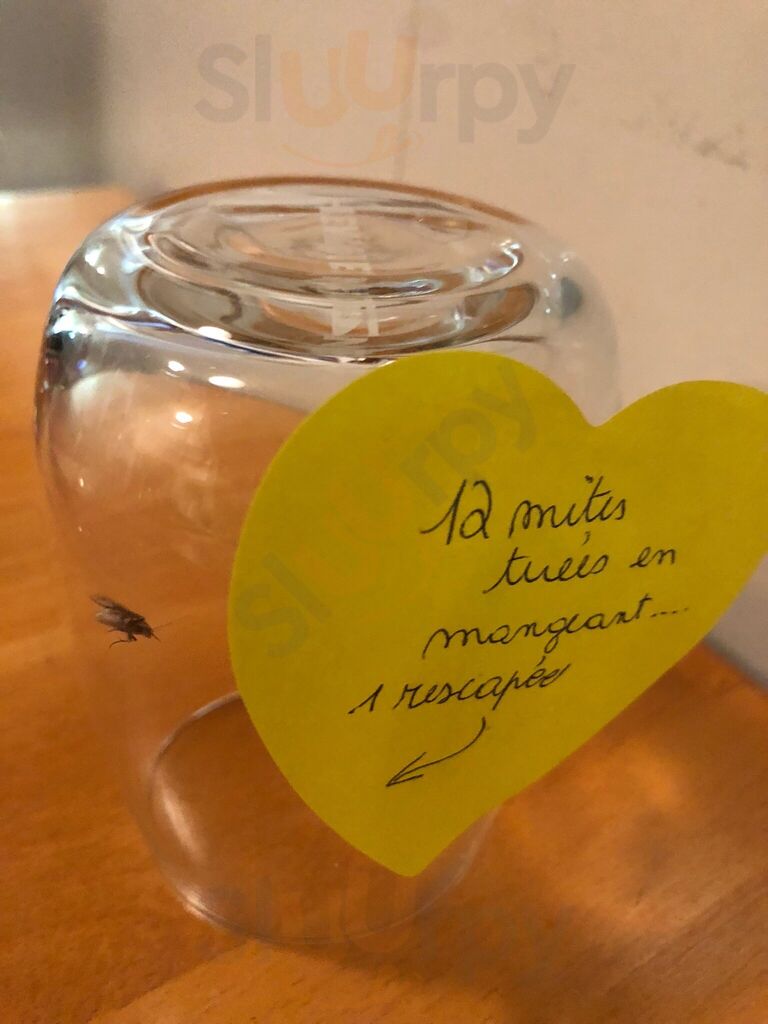 Sluurpy
12 mites
tuées en
mangeant....
1 rescapée
Sluurpy